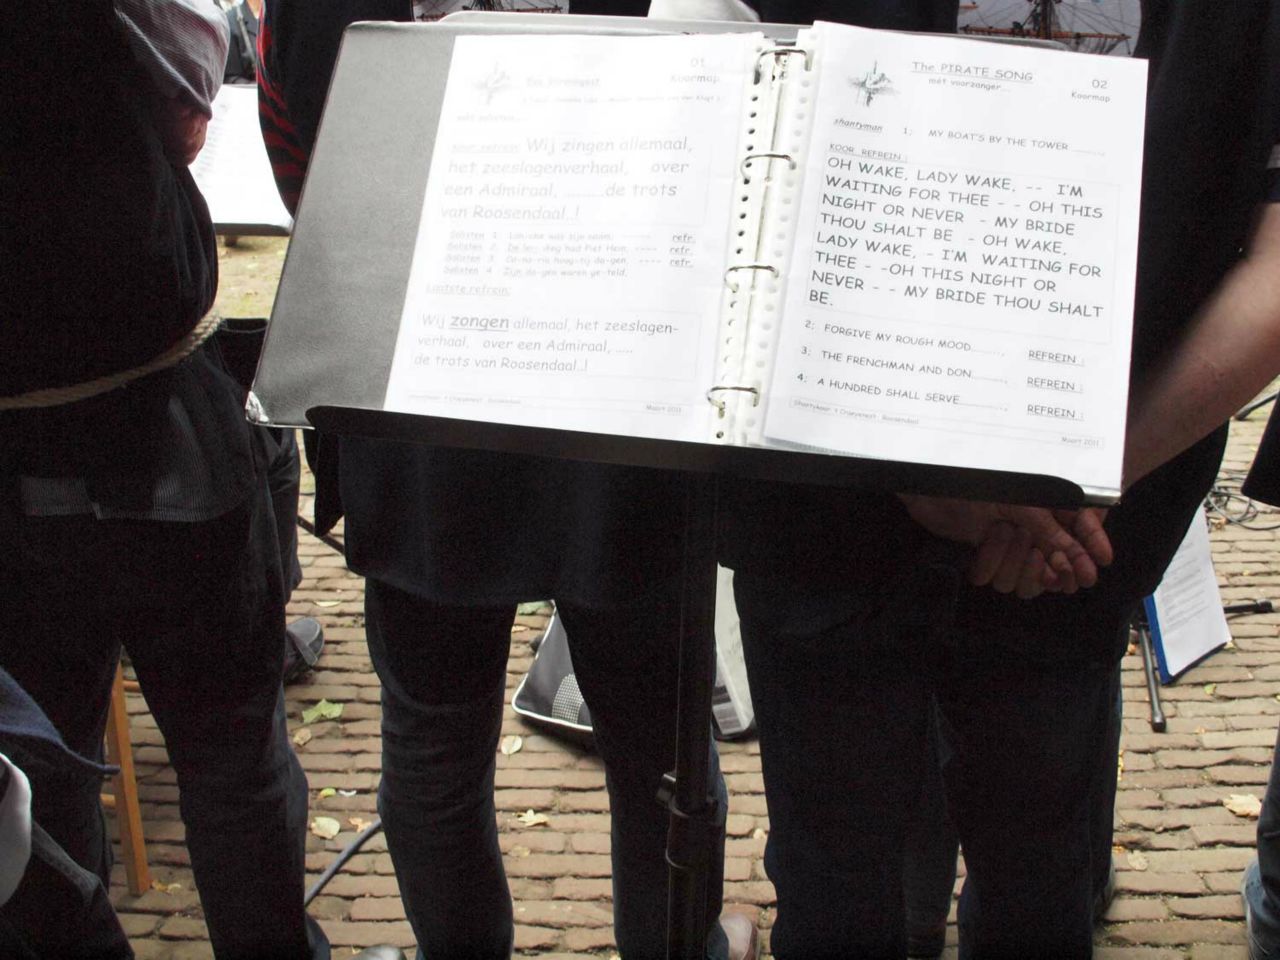 01
Koormap
Koor refrein: Wij zingen allemaal,
het zeeslagenverhaal, over
een Admiraal, ........de trots
van Roosendaal..!
Solisten 1. refr.
Solisten 2. De had Piet Hein, ---- refr.
Solisten 3. ---- refr.
Solisten 4. Zijn da-gen waren ge-teld,
Laatste refrein:
Wij zongen allemaal, het zeeslagen-
verhaal, over een Admiraal, .....
de trots van Roosendaal..!
Maart 2011
The PIRATE SONG
mét voorzanger...
02
Koormap
shantyman 1; MY BOAT'S BY THE TOWER .........
KOOR REFREIN :
OH WAKE, LADY WAKE, -- I'M
WAITING FOR THEE - - OH THIS
NIGHT OR NEVER - MY BRIDE
THOU SHALT BE - OH WAKE,
LADY WAKE, - I'M WAITING FOR
THEE - -OH THIS NIGHT OR
NEVER - - MY BRIDE THOU SHALT
BE.
2; FORGIVE MY ROUGH MOOD........, REFREIN :
3; THE FRENCHMAN AND DON........., REFREIN :
4; A HUNDRED SHALL SERVE..........., REFREIN :
Shantykoor 't Craeyenest - Roosendaal
Maart 2011